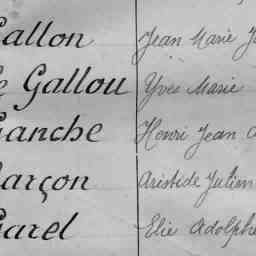 Gallon Jean Marie
Le Gallou Yves Marie
Ganche Henri Jean
Garçon Aristide Julien
Garel Elie Adolphe